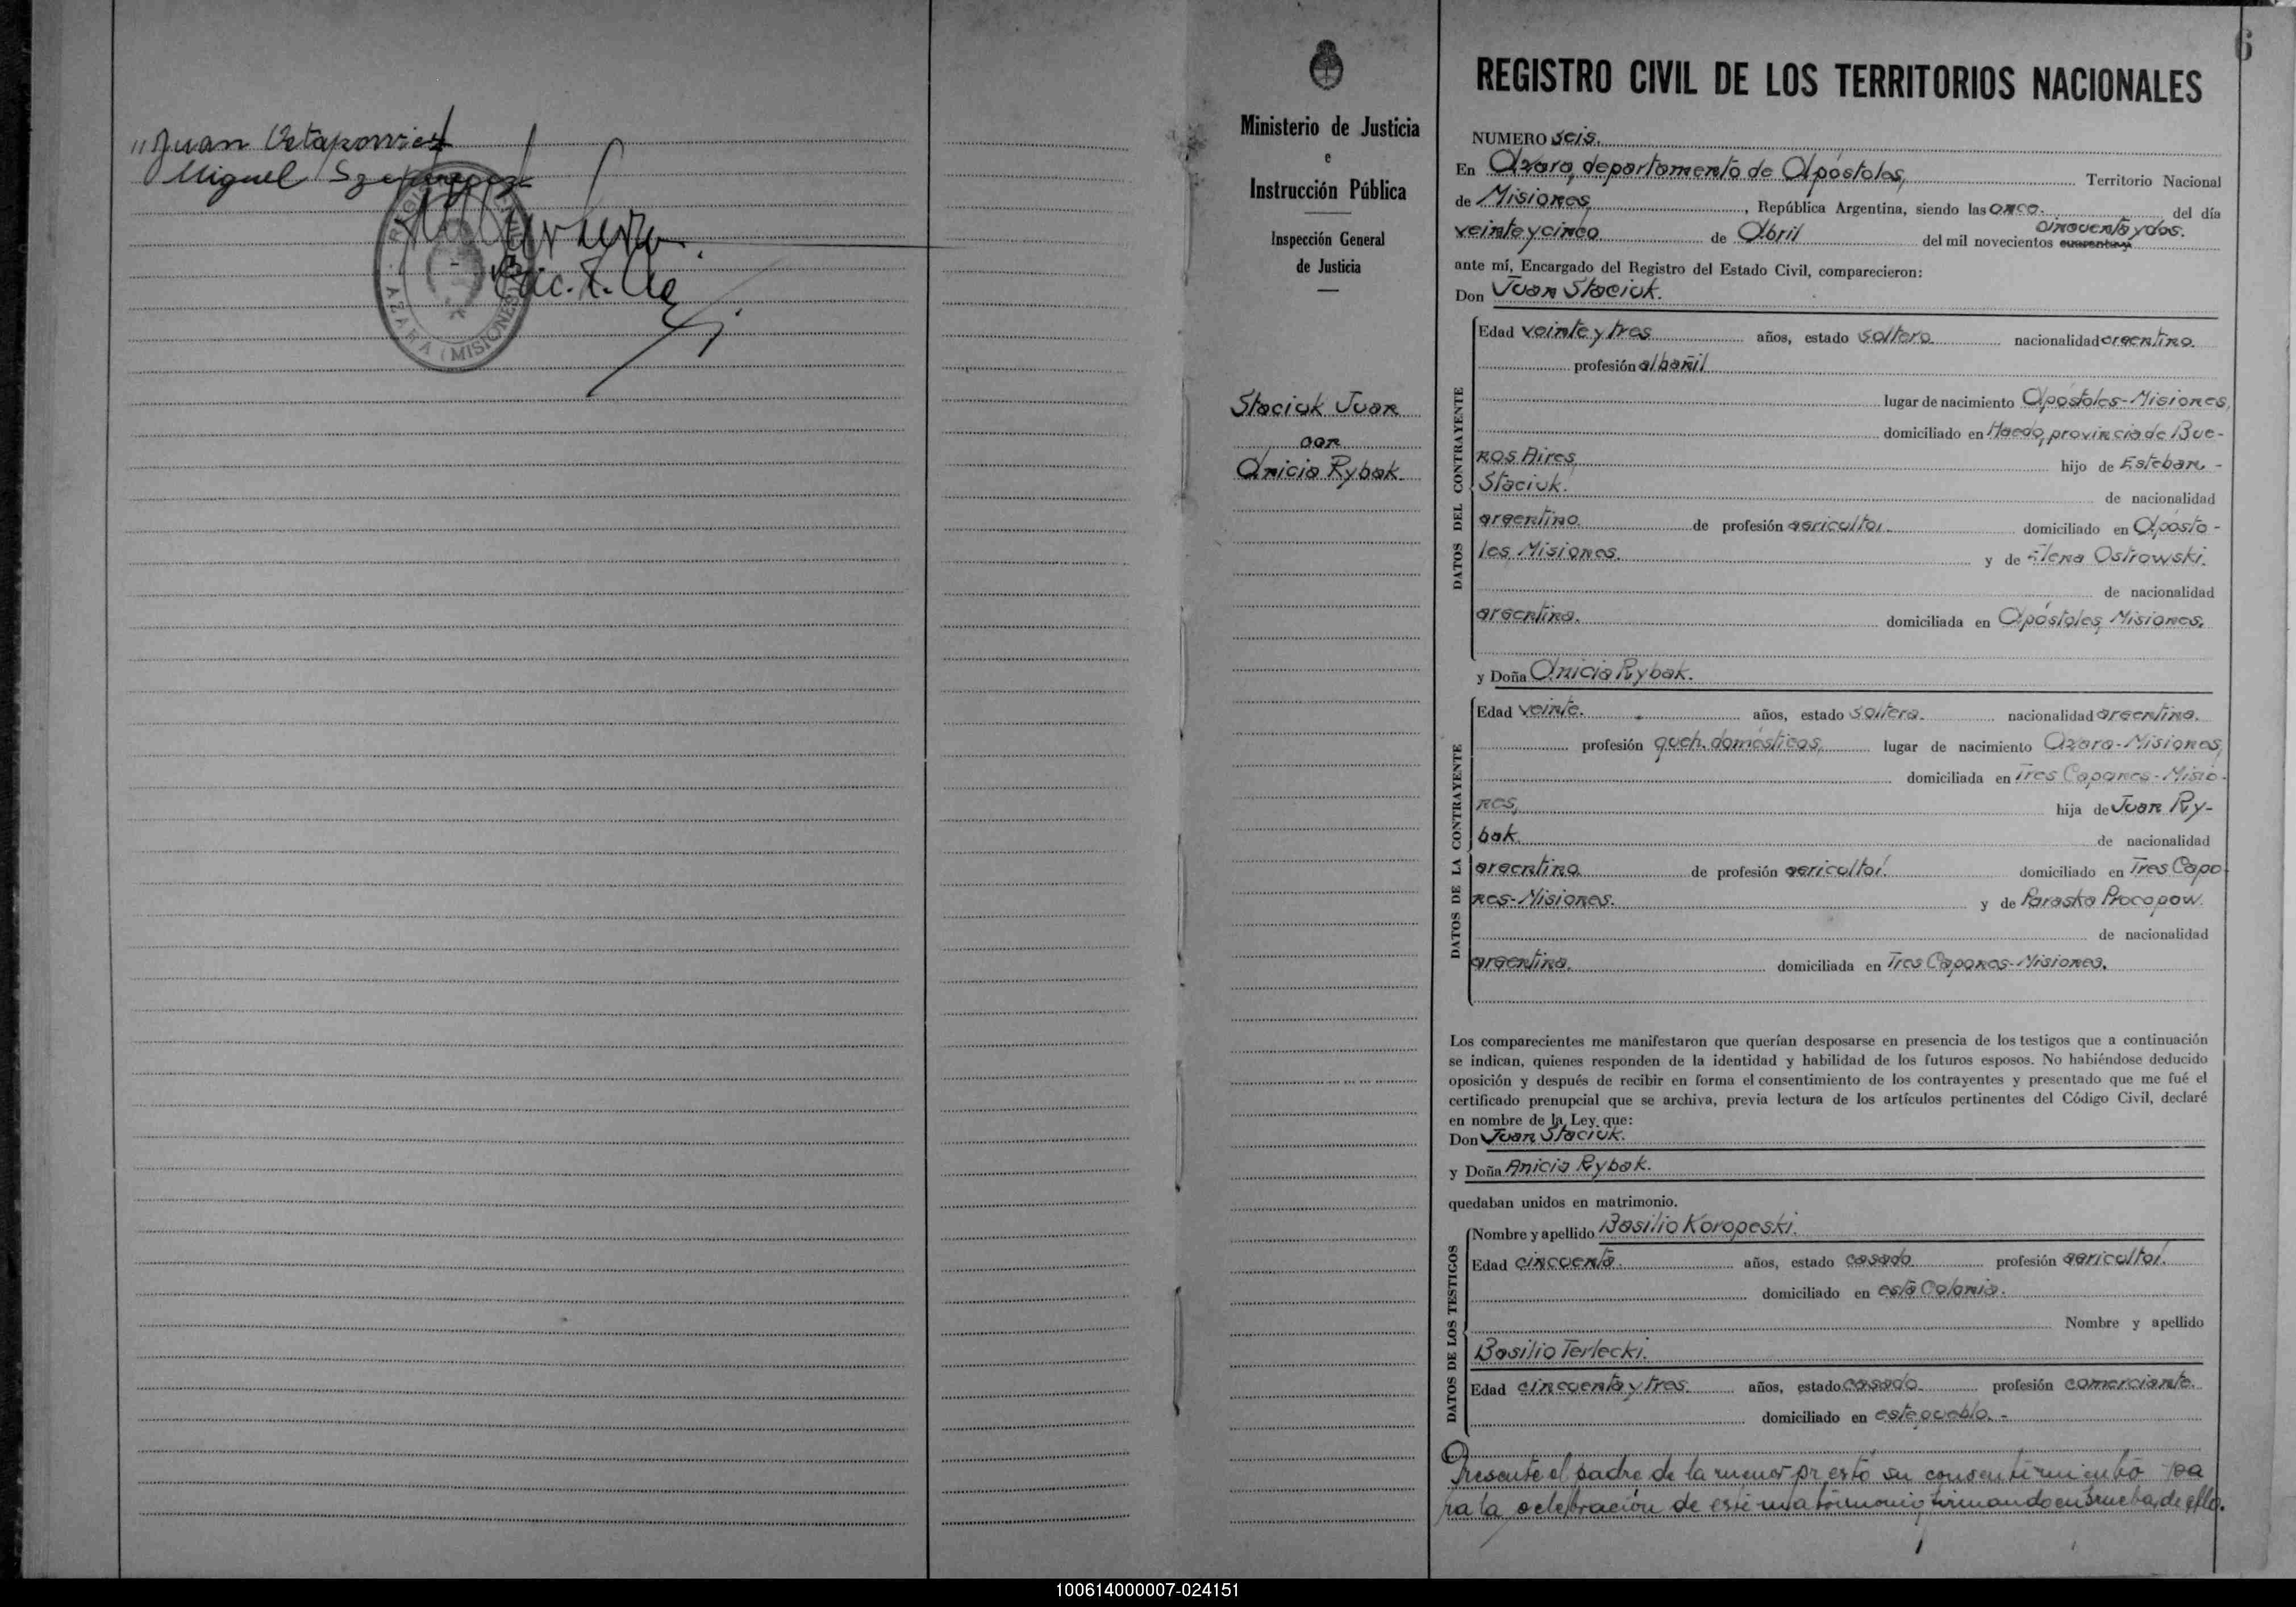 "Juan Ostapowicz
Miguel
AZARA (MISIONES)
Enc. R. C.
Ministerio de Justicia
e
Instrucción Pública
Inspección General
de Justicia
Staciuk Juan
con
Anicia Rybak
6
REGISTRO CIVIL DE LOS TERRITORIOS NACIONALES
NUMERO seis.
En Azara, departamento de Apóstoles, Territorio Nacional
de Misiones, República Argentina, siendo las once. del día
cincuenta y dos.
veinte y cinco de Abril del mil novecientos cuarenta y
ante mí, Encargado del Registro del Estado Civil, comparecieron:
Don Juan Staciuk.
DATOS DEL CONTRAYENTE
Edad veinte y tres años, estado soltero nacionalidad argentino.
profesión albañil
lugar de nacimiento Apóstoles-Misiones,
domiciliado en Haedo, provincia de Bue-
nos Aires, hijo de Esteban -
Staciuk. de nacionalidad
argentino de profesión agricultor. domiciliado en Aposto-
les Misiones. y de Elena Ostrowski.
de nacionalidad
argentina. domiciliada en Apóstoles, Misiones.
y Doña Anicia Rybak.
DATOS DE LA CONTRAYENTE
Edad veinte. años, estado soltera. nacionalidad argentina.
profesión queh. domésticos, lugar de nacimiento Azara-Misiones,
domiciliada en Tres Capones-Misio-
nes, hija de Juan Ry-
bak. de nacionalidad
argentino de profesión agricultor. domiciliado en Tres Capo
nes-Misiones. y de Paraska Procopow.
de nacionalidad
argentina. domiciliada en Tres Capones-Misiones.
Los comparecientes me manifestaron que querían desposarse en presencia de los testigos que a continuación
se indican, quienes responden de la identidad y habilidad de los futuros esposos. No habiéndose deducido
oposición y después de recibir en forma el consentimiento de los contrayentes y presentado que me fué el
certificado prenupcial que se archiva, previa lectura de los artículos pertinentes del Código Civil, declaré
en nombre de la Ley que:
Don Juan Staciuk.
y Doña Anicia Rybak.
quedaban unidos en matrimonio.
DATOS DE LOS TESTIGOS
Nombre y apellido Basilio Koropeski.
Edad cincuenta. años, estado casado profesión agricultor.
domiciliado en esta Colonia.
Nombre y apellido
Basilio Terlecki.
Edad cincuenta y tres. años, estado casado profesión comerciante.
domiciliado en este pueblo. -
Presente el padre de la menor prestó su consentimiento pa
ra la celebración de este matrimonio firmando en prueba de ello.
100614000007-024151